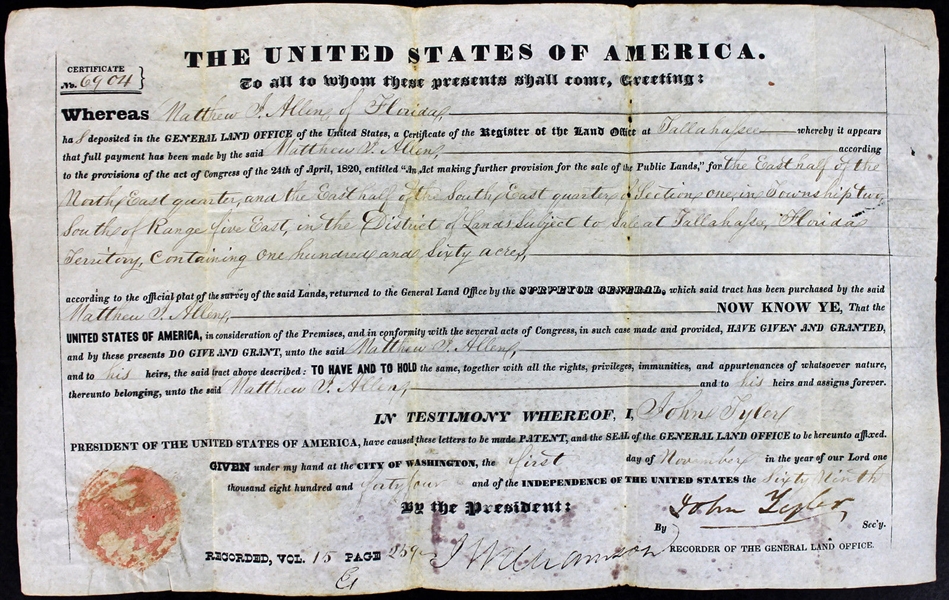 THE UNITED STATES OF AMERICA.
CERTIFICATE
No. 6904
To all to whom these presents shall come, Greeting:
Whereas Matthew J. Allen, of Florida,
ha s deposited in the GENERAL LAND OFFICE of the United States, a Certificate of the Register of the Land Office at Tallahassee whereby it appears
that full payment has been made by the said Matthew J. Allen, according
to the provisions of the act of Congress of the 24th of April, 1820, entitled "An Act making further provision for the sale of the Public Lands," for the East half of the
North East quarter, and the East half of the South East quarter of Section one, in Township two,
South of Range five East, in the District of Lands subject to Sale at Tallahassee, Florida
Territory, Containing one hundred and sixty acres,
according to the official plat of the survey of the said Lands, returned to the General Land Office by the SURVEYOR GENERAL, which said tract has been purchased by the said
Matthew J. Allen, NOW KNOW YE, That the
UNITED STATES OF AMERICA, in consideration of the Premises, and in conformity with the several acts of Congress, in such case made and provided, HAVE GIVEN AND GRANTED,
and by these presents DO GIVE AND GRANT, unto the said Matthew J. Allen,
and to his heirs, the said tract above described: TO HAVE AND TO HOLD the same, together with all the rights, privileges, immunities, and appurtenances of whatsoever nature,
thereunto belonging, unto the said Matthew J. Allen, and to his heirs and assigns forever.
IN TESTIMONY WHEREOF, I, John Tyler
PRESIDENT OF THE UNITED STATES OF AMERICA, have caused these letters to be made PATENT, and the SEAL of the GENERAL LAND OFFICE to be hereunto affixed.
GIVEN under my hand at the CITY OF WASHINGTON, the first day of November in the year of our Lord one
thousand eight hundred and forty four and of the INDEPENDENCE OF THE UNITED STATES the Sixty Ninth
By the President: John Tyler,
By Sec'y.
RECORDED, VOL. 15 PAGE 259 RECORDER OF THE GENERAL LAND OFFICE.